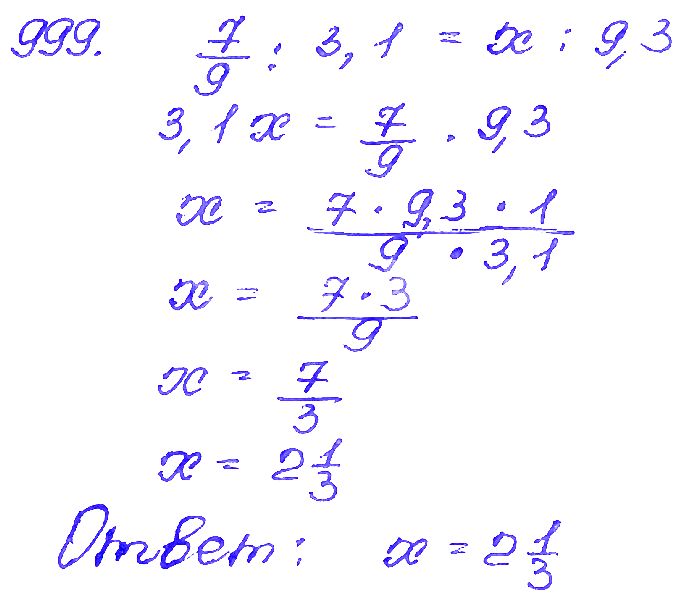 999. 7/9 : 3,1 = x : 9,3
3,1x = 7/9 · 9,3
x = (7 · 9,3 · 1)/(9 · 3,1)
x = (7 · 3)/9
x = 7/3
x = 2 1/3
Ответ: x = 2 1/3